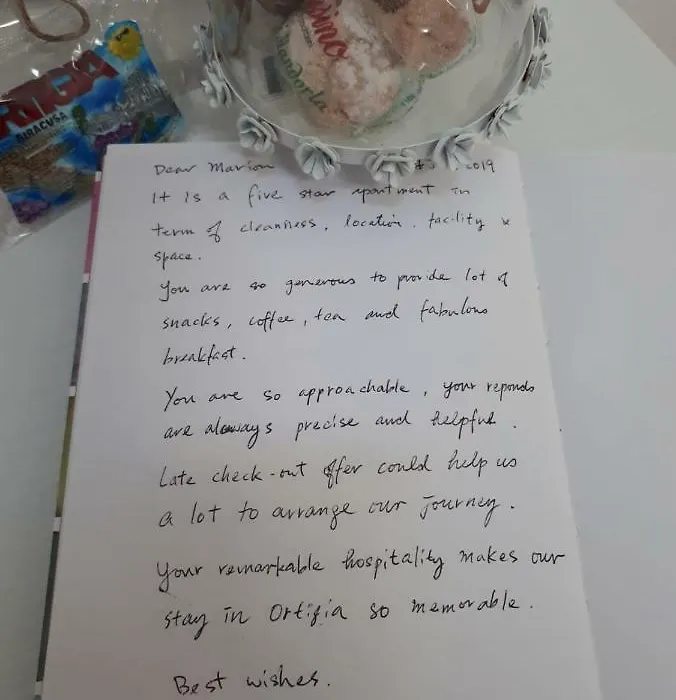 SIRACUSA
Mandorla
Dear Marion 2019
It is a five star apartment in
term of cleanness, location, facility &
space.
You are so generous to provide lot of
snacks, coffee, tea and fabulous
breakfast.
You are so approachable, your reponds
are always precise and helpful.
Late check-out offer could help us
a lot to arrange our journey.
Your remarkable hospitality makes our
stay in Ortifia so memorable.
Best wishes.